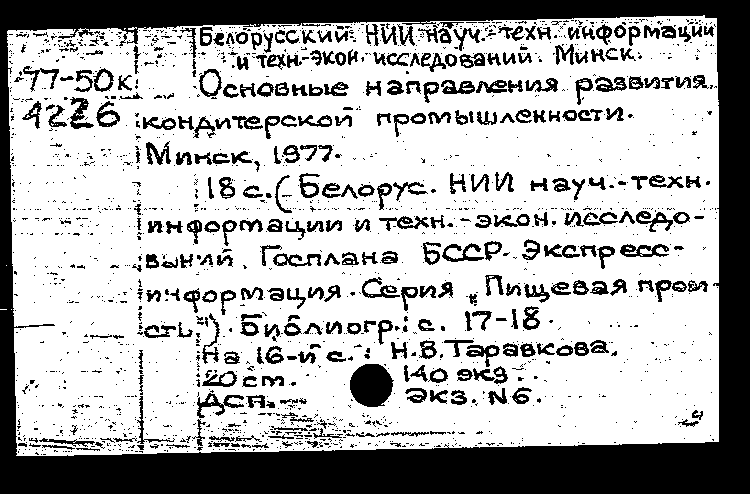 Белорусский НИИ науч.-техн. информации
и техн.-экон. исследований. Минск.
77-50к Основные направления развития
4226 кондитерской промышленности.
Минск, 1977.
18 с. (Белорус. НИИ науч.-техн.
информации и техн.-экон. исследо-
ваний Госплана БССР. Экспресс-
информация. Серия "Пищевая пром-
сть"). Библиогр.: с. 17-18.
На 16-й с.: Н.В. Таравкова.
20 см. 140 экз.
ДСП. экз. N6.